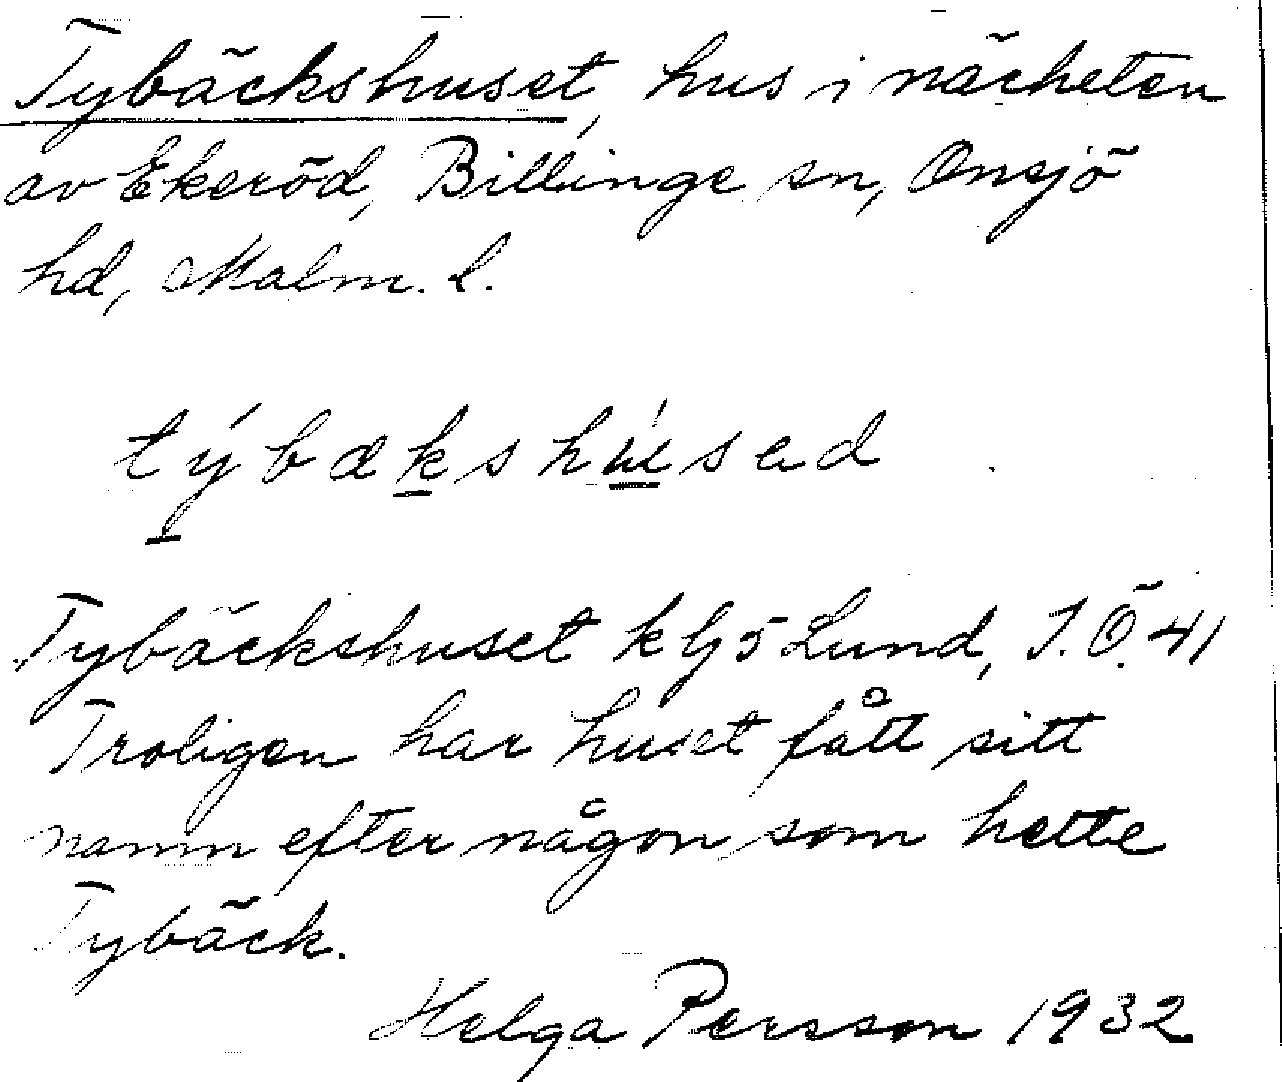 Tybäckshuset, hus i närheten
av Ekeröd, Billinge sn, Onsjö
hd, Malm. l.
týbækshúsəd
Tybäckshuset klj5 Lund, J.Ö. 41
Troligen har huset fått sitt
namn efter någon som hette
Tybäck.
Helga Persson 1932